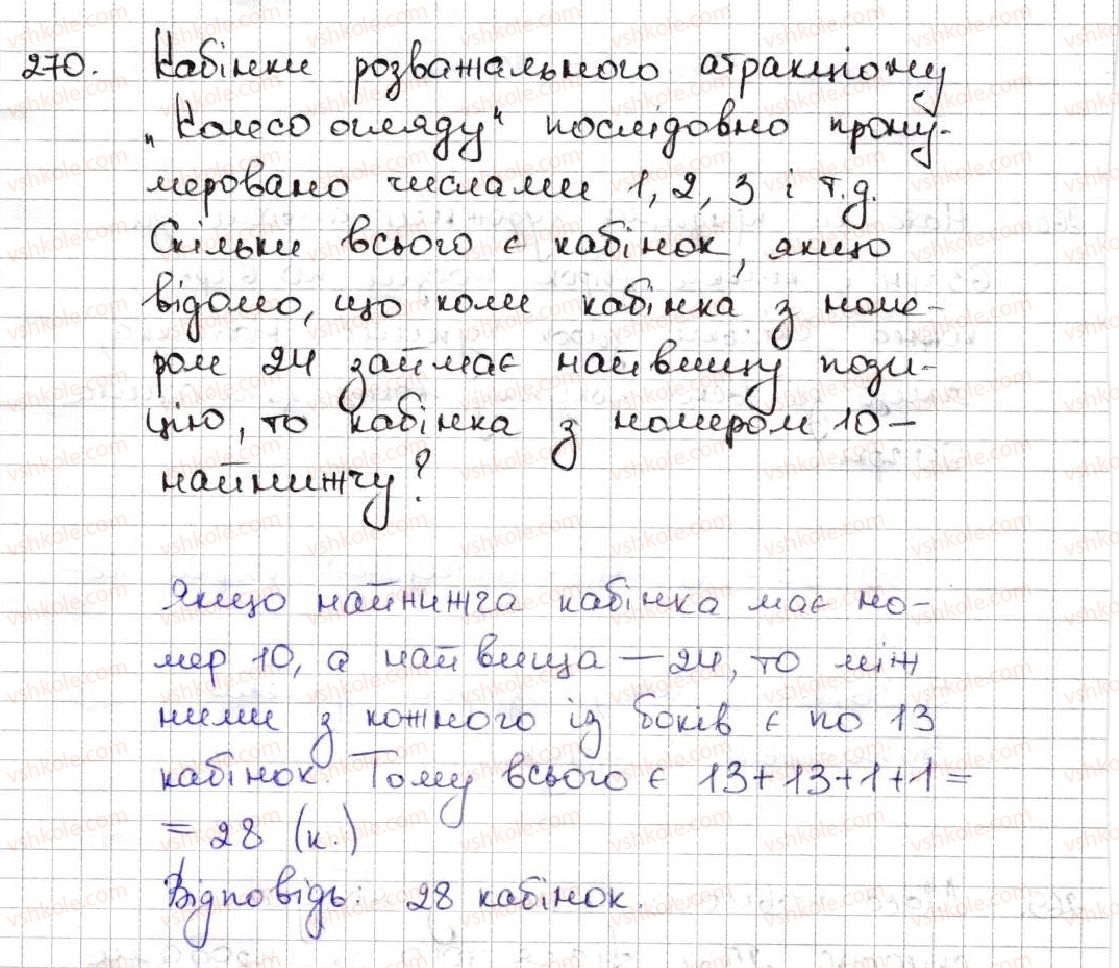 270. Кабінки розважального атракціону
„Колесо огляду" послідовно прону-
меровано числами 1, 2, 3 і т.д.
Скільки всього є кабінок, якщо
відомо, що коли кабінка з номе-
ром 24 займає найвищу пози-
цію, то кабінка з номером 10 –
найнижчу?
Якщо найнижча кабінка має но-
мер 10, а найвища – 24, то між
ними з кожного із боків є по 13
кабінок. Тому всього є 13+13+1+1=
= 28 (к.)
Відповідь: 28 кабінок.